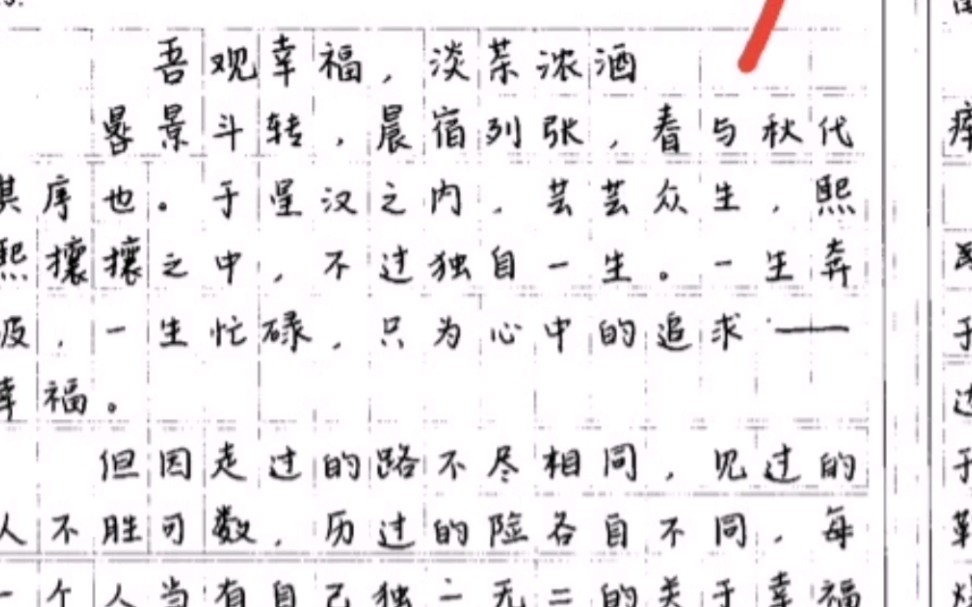 吾观幸福，淡茶浓酒
晷景斗转，晨宿列张，春与秋代
其序也。于星汉之内，芸芸众生，熙
熙攘攘之中，不过独自一生。一生奔
波，一生忙碌，只为心中的追求——
幸福。
但因走过的路不尽相同，见过的
人不胜可数，历过的险各自不同，每
一个人当有自己独一无二的关于幸福